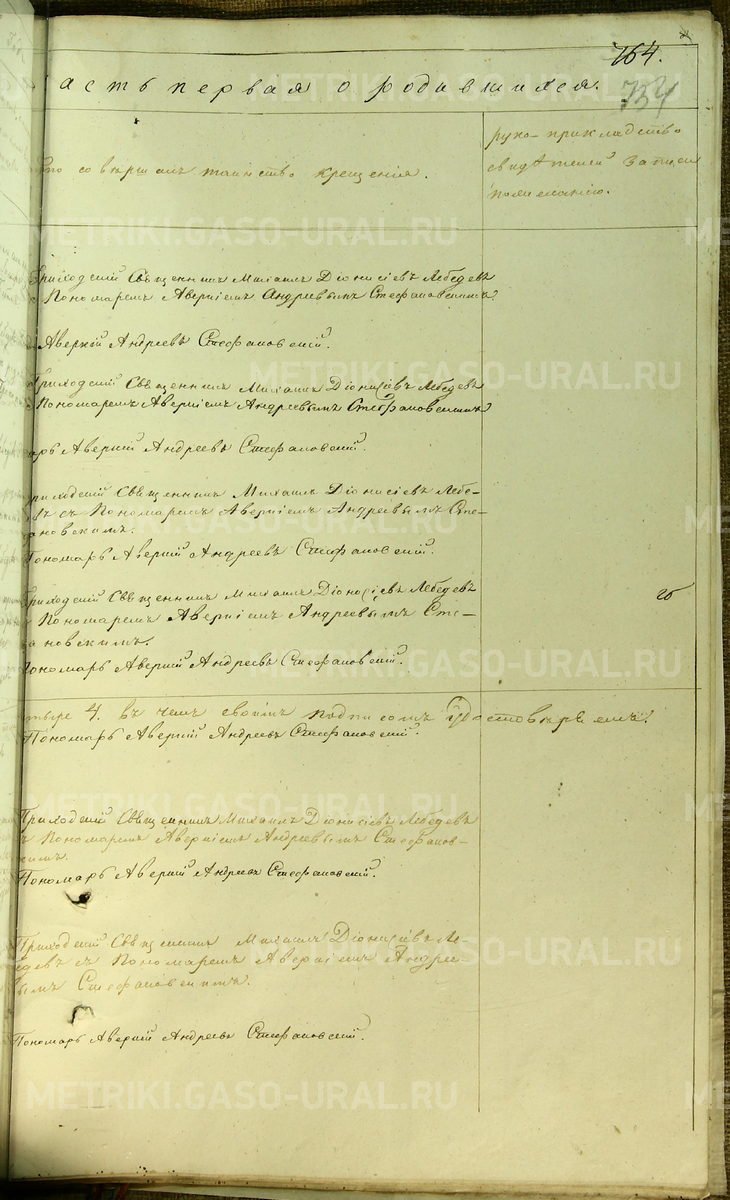 764.
734
асть первая о родившихся.
то совершалъ таинство крещенія.
руко-прикладство
свидѣтелей записи
по желанію.
Приходскій Священникъ Михаилъ Діонисіевъ Лебедевъ
Пономаремъ Аверкіемъ Андреевымъ Стефановскимъ
Аверкій Андреевъ Стефановскій.
Приходскій Священникъ Михаилъ Діонисіевъ Лебедевъ
Пономаремъ Аверкіемъ Андреевымъ Стефановскимъ
арь Аверкій Андреевъ Стефановскій.
риходскій Священникъ Михаилъ Діонисіевъ Лебе-
въ съ Пономаремъ Аверкіемъ Андреевымъ Сте-
ановскимъ.
Пономарь Аверкій Андреевъ Стефановскій.
Приходскій Священникъ Михаилъ Діонисіевъ Лебедевъ
Пономаремъ Аверкіемъ Андреевымъ Сте-
ановскимъ.
Пономарь Аверкій Андреевъ Стефановскій.
тыре 4. въ чемъ своимъ подписомъ удостовѣряемъ.
Пономарь Аверкій Андреевъ Стефановскій.
Приходскій Священникъ Михаилъ Діонисіевъ Лебедевъ
съ Пономаремъ Аверкіемъ Андреевымъ Стефанов-
кимъ.
Пономарь Аверкій Андреевъ Стефановскій.
Приходскій Священникъ Михаилъ Діонисіевъ Ле-
едевъ съ Пономаремъ Аверкіемъ Андрее-
вымъ Стефановскимъ.
Пономарь Аверкій Андреевъ Стефановскій.
METRIKI.GASO-URAL.RU